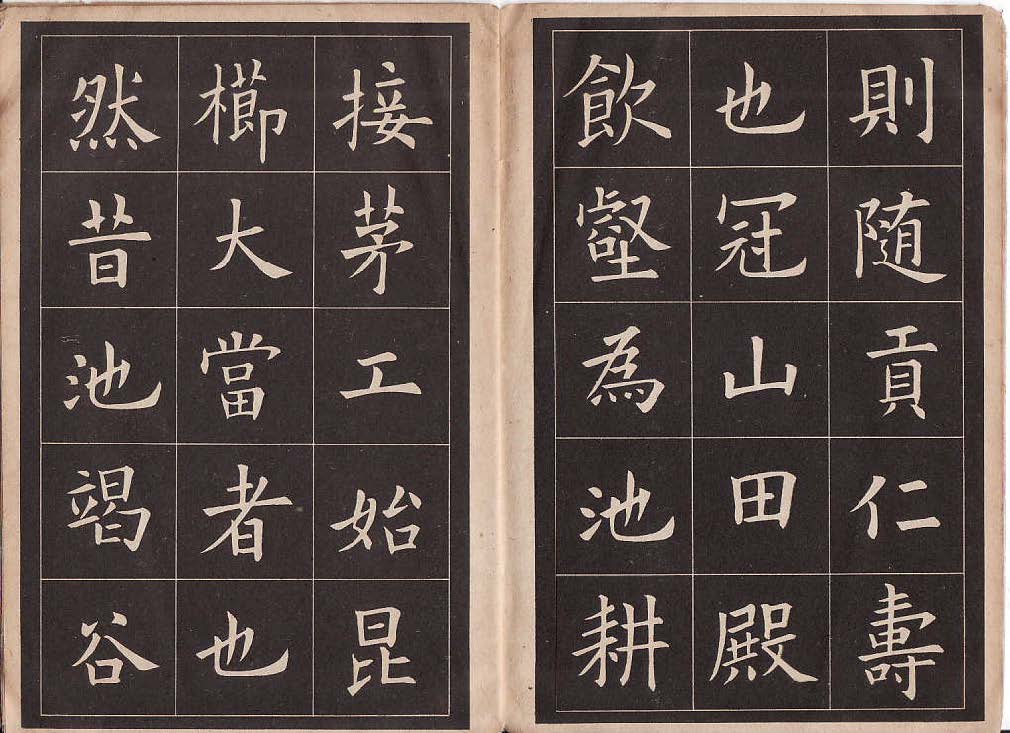 則随貢仁壽
也冠山田殿
飲壑為池耕
接茅工始昆
櫛大當者也
然昔池竭谷